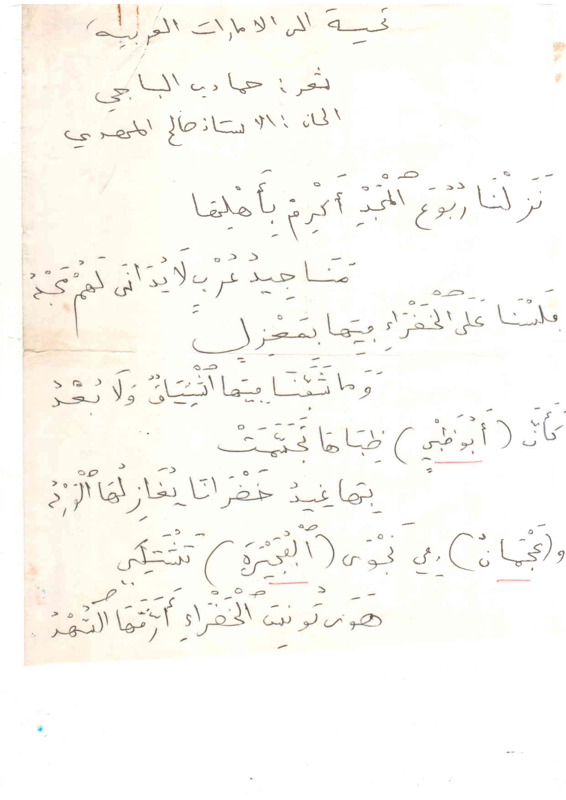 تحية الى الامارات العربية
شعر : حمادي الباجي
الحان : الاستاذ صالح المهدي
نَزَلْنَا رُبُوعَ الْمَجْدِ أَكْرِمْ بِأَهْلِهَا
مَنَاجِيدُ عُرْبٍ لَا يُدَانَى لَهُمْ مَجْدُ
فَلَسْنَا عَلَى الْخَضْرَاءِ فِيهَا بِمَعْزِلٍ
وَمَا شَفَّنَا فِيهَا اشْتِيَاقٌ وَلَا بُعْدُ
كَأَنَّ (أَبُوظَبْيٍ) ظِبَاهَا تَجَمَّعَتْ
بِهَا غِيدُ خَضْرَانَا يُغَازِلُهَا الْوَرْدُ
و(عَجْمَانُ) فِي نَجْوَى (الْفُجَيْرَةِ) تَشْتَكِي
هَوَى تُونِسَ الْخَضْرَاءِ أَرَّقَهَا السُّهْدُ